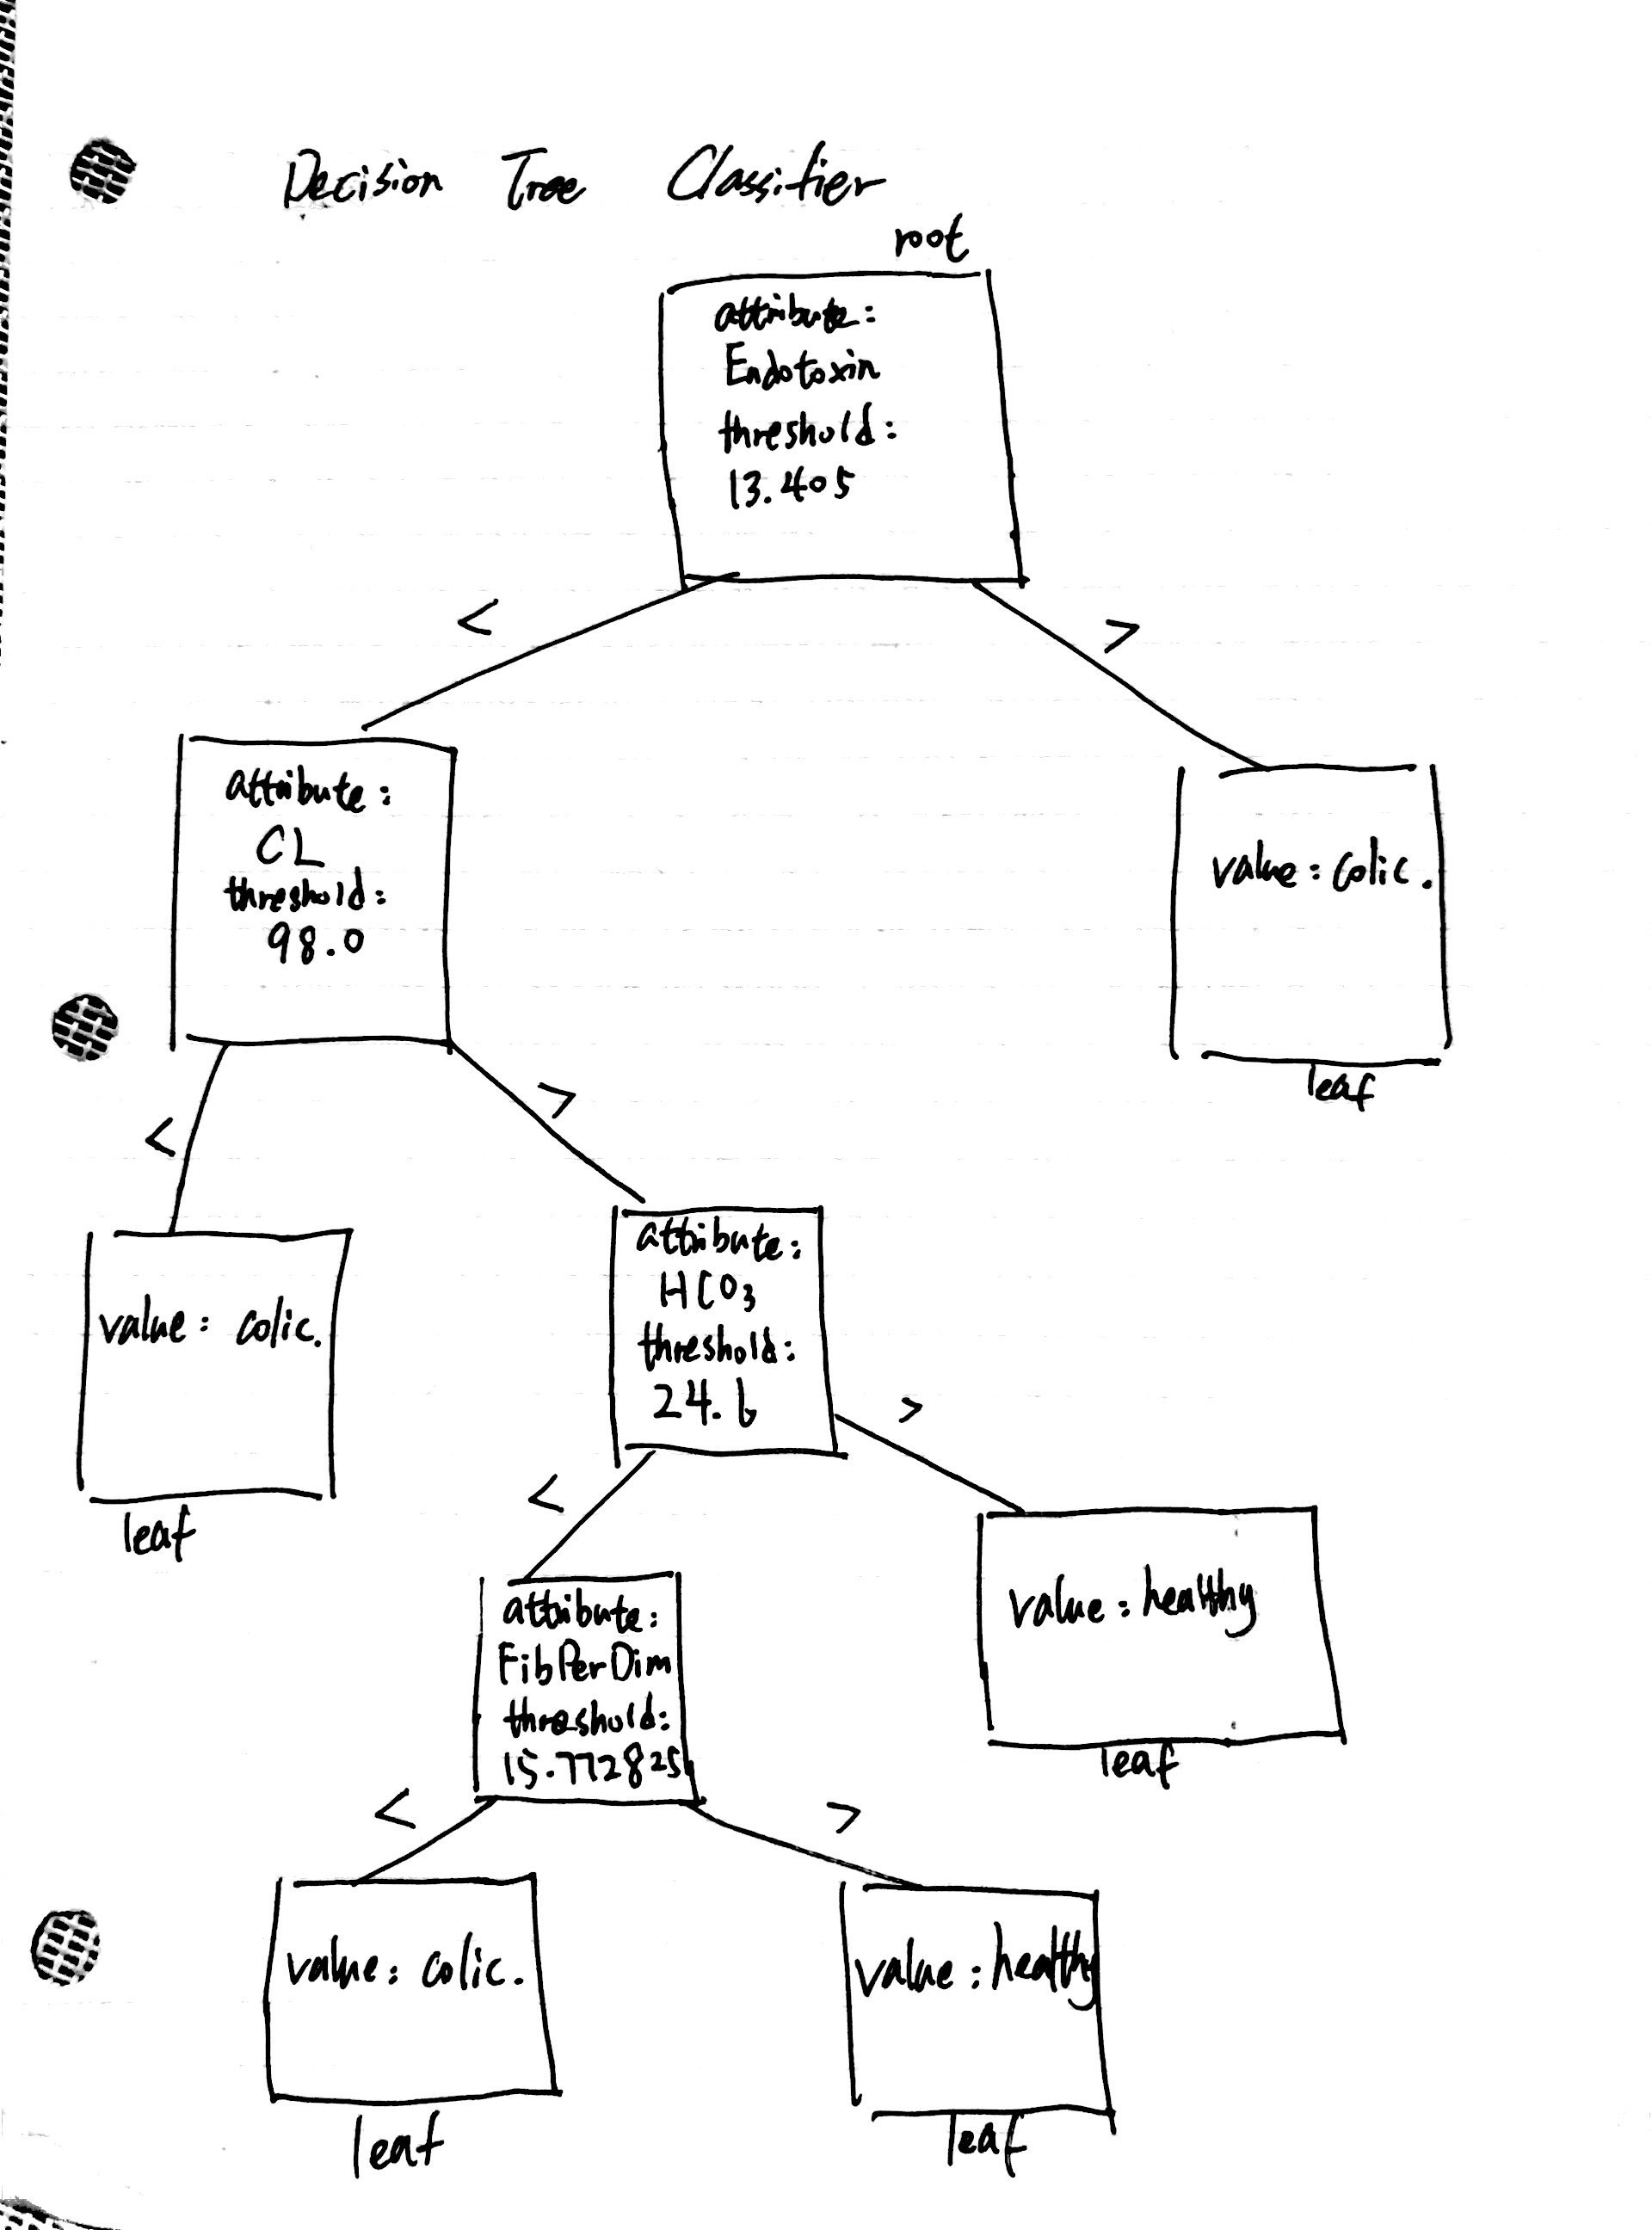 Decision Tree Classifier
root
attribute:
Endotoxin
threshold:
13.405
<
>
attribute:
CL
threshold:
98.0
value: colic.
leaf
<
>
value: colic.
leaf
attribute:
HCO3
threshold:
24.6
<
>
attribute:
FibPerDim
threshold:
15.772825
value: healthy
leaf
<
>
value: colic.
leaf
value: healthy
leaf